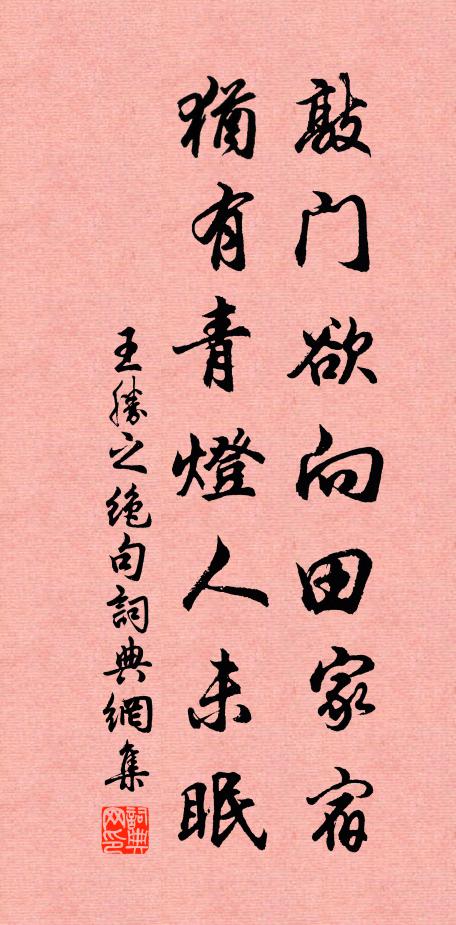 敲门欲向田家宿
猶有青燈人未眠
王勝之绝句詞典網集
詞典网印